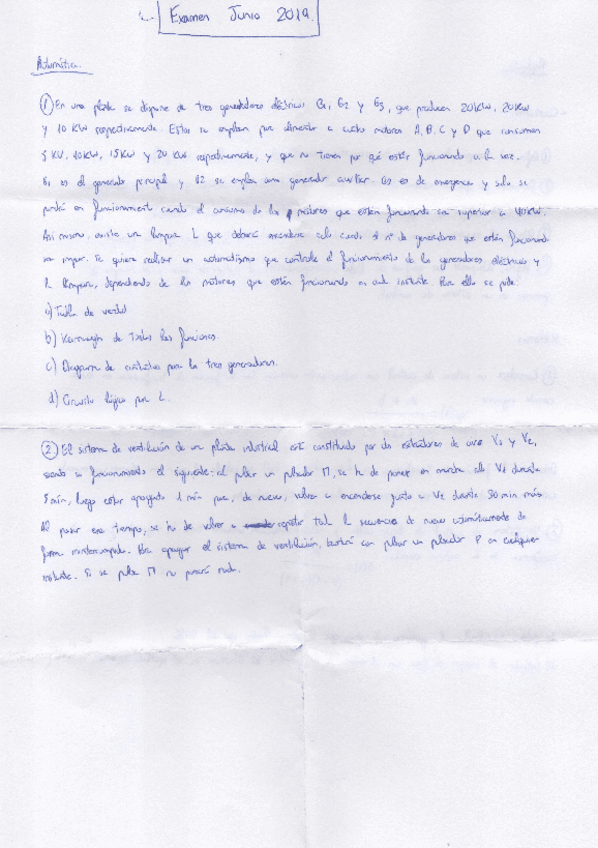 Examen Junio 2019
Automática.
① En una planta se dispone de tres generadores eléctricos G1, G2 y G3, que producen 20KW, 20KW
y 10 KW respectivamente. Estos se emplean para alimentar a cuatro motores A, B, C y D que consumen
5 KW, 10KW, 15KW y 20 KW respectivamente, y que no tienen por qué estar funcionando a la vez.
G1 es el generador principal y G2 se emplea como generador auxiliar. G3 es de emergencia y solo se
pondrá en funcionamiento cuando el consumo de los motores que estén funcionando sea superior a 40KW.
Asi mismo, existe una lámpara L que deberá encenderse solo cuando el nº de generadores que estén funcionando
sea impar. Se quiere realizar un automatismo que controle el funcionamiento de los generadores eléctricos y
la lámpara, dependiendo de los motores que estén funcionando en cada instante. Para ello se pide:
a) Tabla de verdad
b) Karnaugh de todas las funciones.
c) Diagrama de contactos para los tres generadores.
d) Circuito lógico para L.
② El sistema de ventilación de una planta industrial está constituido por dos extractores de aire V1 y V2,
siendo su funcionamiento el siguiente: al pulsar un pulsador M, se ha de poner en marcha V1 durante
5 min, luego estar apagado 1 min para, de nuevo, volver a encenderse junto a V2 durante 30 min más
Al pasar ese tiempo, se ha de volver a repetir toda la secuencia de nuevo automáticamente de
forma ininterrumpida. Para apagar el sistema de ventilación, bastará con pulsar un pulsador P en cualquier
instante. Si se pulsa M no pasará nada.